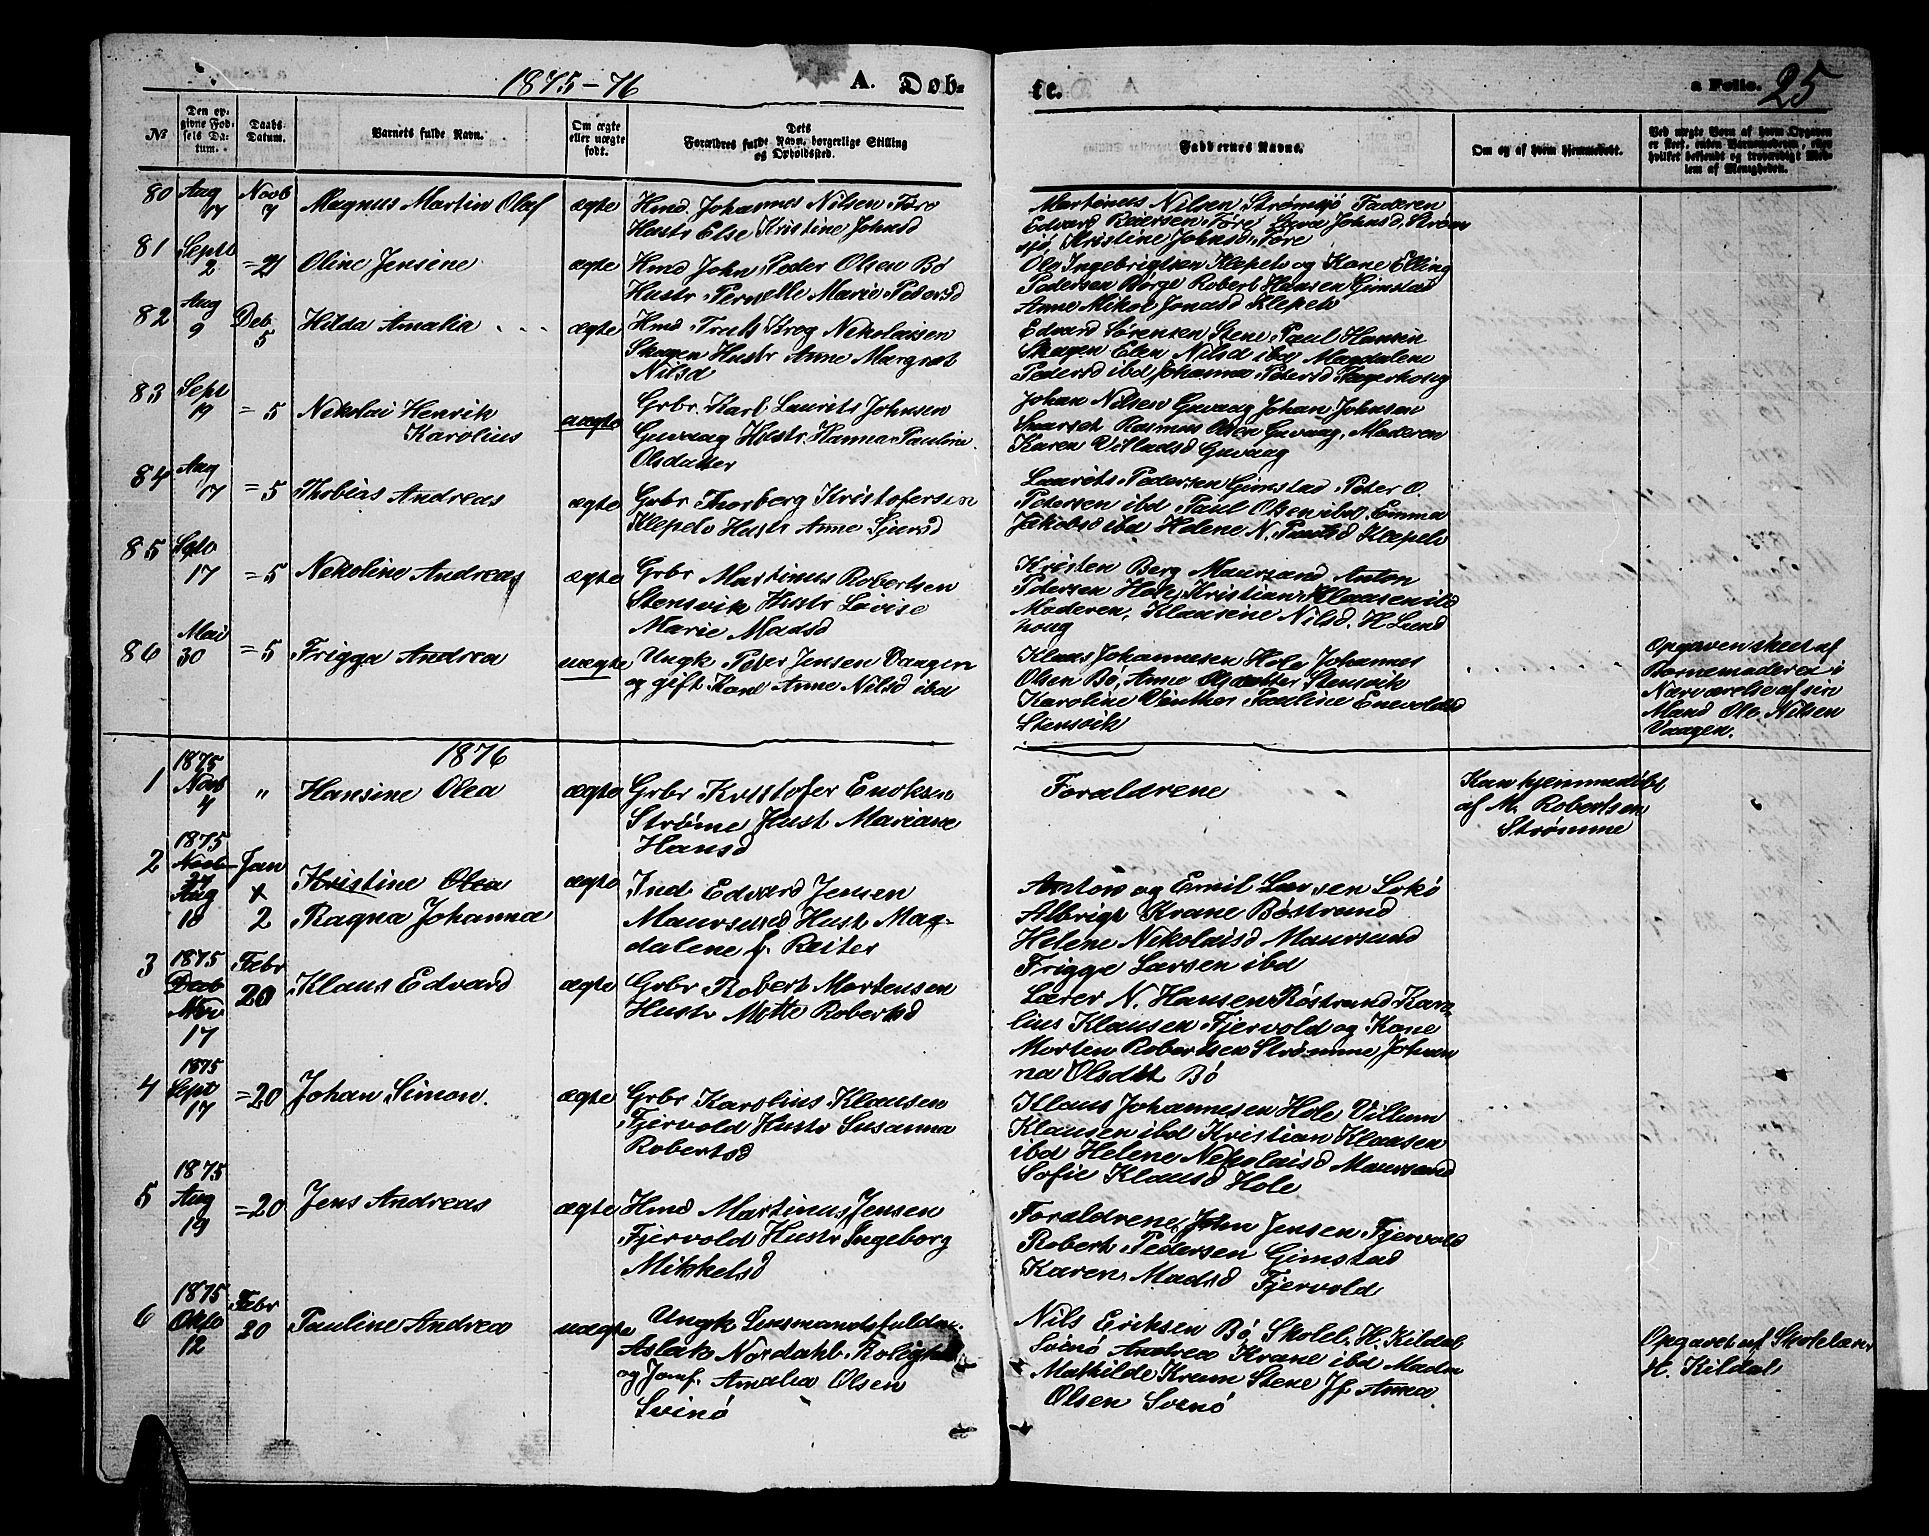 1875-76
A. Døb-
te.
a Folio. 25
№
Den op-
givne Fød-
sels Da-
tum.
Daabs-
Datum.
Barnets fulde Navn.
Om ægte
eller uægte
født.
Dets
Forældres fulde Navn, borgerlige Stilling
og Opholdssted.
Faddernes Navne.
Om og af hvem hjemmedøbt.
Ved uægte Børn af hvem Opgaven
er skeet, enten Barnemoderen, eller
hvilket bekjendt og troværdigt Med-
lem af Menigheden.
80 Aug 17 Novb 7 Magnus Martin Olaf ægte
Hmd Johannes Nilsen Føre
Hustr Else Kristine Johnsd
Martinus Nilsen Strømsjö Faderen
Edvard Reiersen Føre, Johnsd, Strøm
sjö Kristine Johnsd Føre
81 Septb 2 =21 Oline Jensine ægte
Hmd John Peder Olsen Bö
Hustr Pernelle Marie Pedersd
Ole Ingebrigtsen Klepels og Kone Elling
Pedersen Börge Robert Hansen Gimstad
Anne Mikol Jonasd Klepels
82 Aug 9 Deb 5 Hilda Amalia ægte
Hmd Krog Nekolaisen
Skagen Hustr Anne Margret
Nilsd
Edvard Sørensen Stene Paul Hansen
Skagen Elen Nilsd ibd Magdalene
Pedersd ibd Johanna Petersd
83 Sept 19 =5 Nekolai Henrik
Karolius uægte
Grbr Karl Laurits Johnsen
Guvaag Hustr Hanna Pauline
Olsdatter
Johan Nilsen Guvaag Johan Johnsen
Rasmus Olsen Guvaag, Moderen
Karen Villadsd Guvaag
84 Aug 17 =5 Thobias Andreas ægte
Grbr Thorberg Kristofersen
Klepels Hustr Anne Sjursd
Laurits Pedersen Gimstad Peter O.
Petersen ibd Paul Olsen ibd Emma
Jakobsd ibd Helene N. Klepels
85 Septb 17 =5 Nekoline Andreas ægte
Grbr Martinus Robertsen
Stensvik Hustr Lovise
Marie Madsd
Kristen Berg Maursund Anton
Petersen Hole, Kristian Klausen ibd
Moderen, Klausine Nilsd. H. Lund
houg
86 Mai 30 =5 Frigga Andrea uægte
Ungk Peter Jensen Vaagen
og gift Kone Anne Nilsd ibd
Klaus Johannesen Hole Johannes
Olsen Bö, Anne Olsdatter Stensvik
Karoline Pauline Enevoldsd
Stensvik
Opgaven skeet af
Barnemoderen i
Nærværelse af sin
Mand Ole Nilsen
Vaagen.
1876
1 1875 Novb 4 " Hansine Olea ægte
Grbr Kristofer Enoksen
Strøme Hust Mariane
Hansd
Forældrene
Kun hjemmedöbt
af M. Robertsen
Strømme
2 1875 Novb 27 Aug 18 Jan 2 Kristine Olea
Ragna Johanna ægte
Ind Edvard Jensen
Maursund Hust Mag-
dalene f. Reiter
Anton og Emil Larsen Lokö
Albrigt Krane Böstrand
Helene Nekolaisd Maursund
Frigge Larsen ibd
3 1875 Decb Nov 17 Febr 20 Klaus Edvard ægte
Grbr Robert Mortensen
Hustr Mette Robertsd
Lærer N. Hansen Röstrand Karo-
lius Klausen Fjervold og Kone
Morten Robertsen Strømme Johan
na Olsdtt Bö
4 1875 Sept 17 =20 Johan Simon. ægte
Grbr Karolius Klausen
Fjervold Hustr Susanna
Robertsd
Klaus Johannesen Hole Villum
Klausen ibd Kristian Klausen
ibd Helene Nekolaisd Maursund
Sofie Klausd Hole
5 1875 Aug 19 =20 Jens Andreas ægte
Hmd Martinus Jensen
Fjervold Hustr Ingeborg
Mikkelsd
Forældrene, John Jensen Fjervold
Robert Pedersen Gimstad
Karen Madsd Fjervold
6 1875 Oktb 12 Febr 20 Pauline Andrea uægte
Ungk Lensmandsfuldm.
Aslak Nordahl
og Jomf. Amalia Olsen
Svinö
Nils Eriksen Bö Skolel. H. Kildal
Svinö Andrea Krane ibd Madm
Mathilde Krum Stene Jf Anna
Olsen Svinö
Opgavet af Skolelærer
H. Kildal